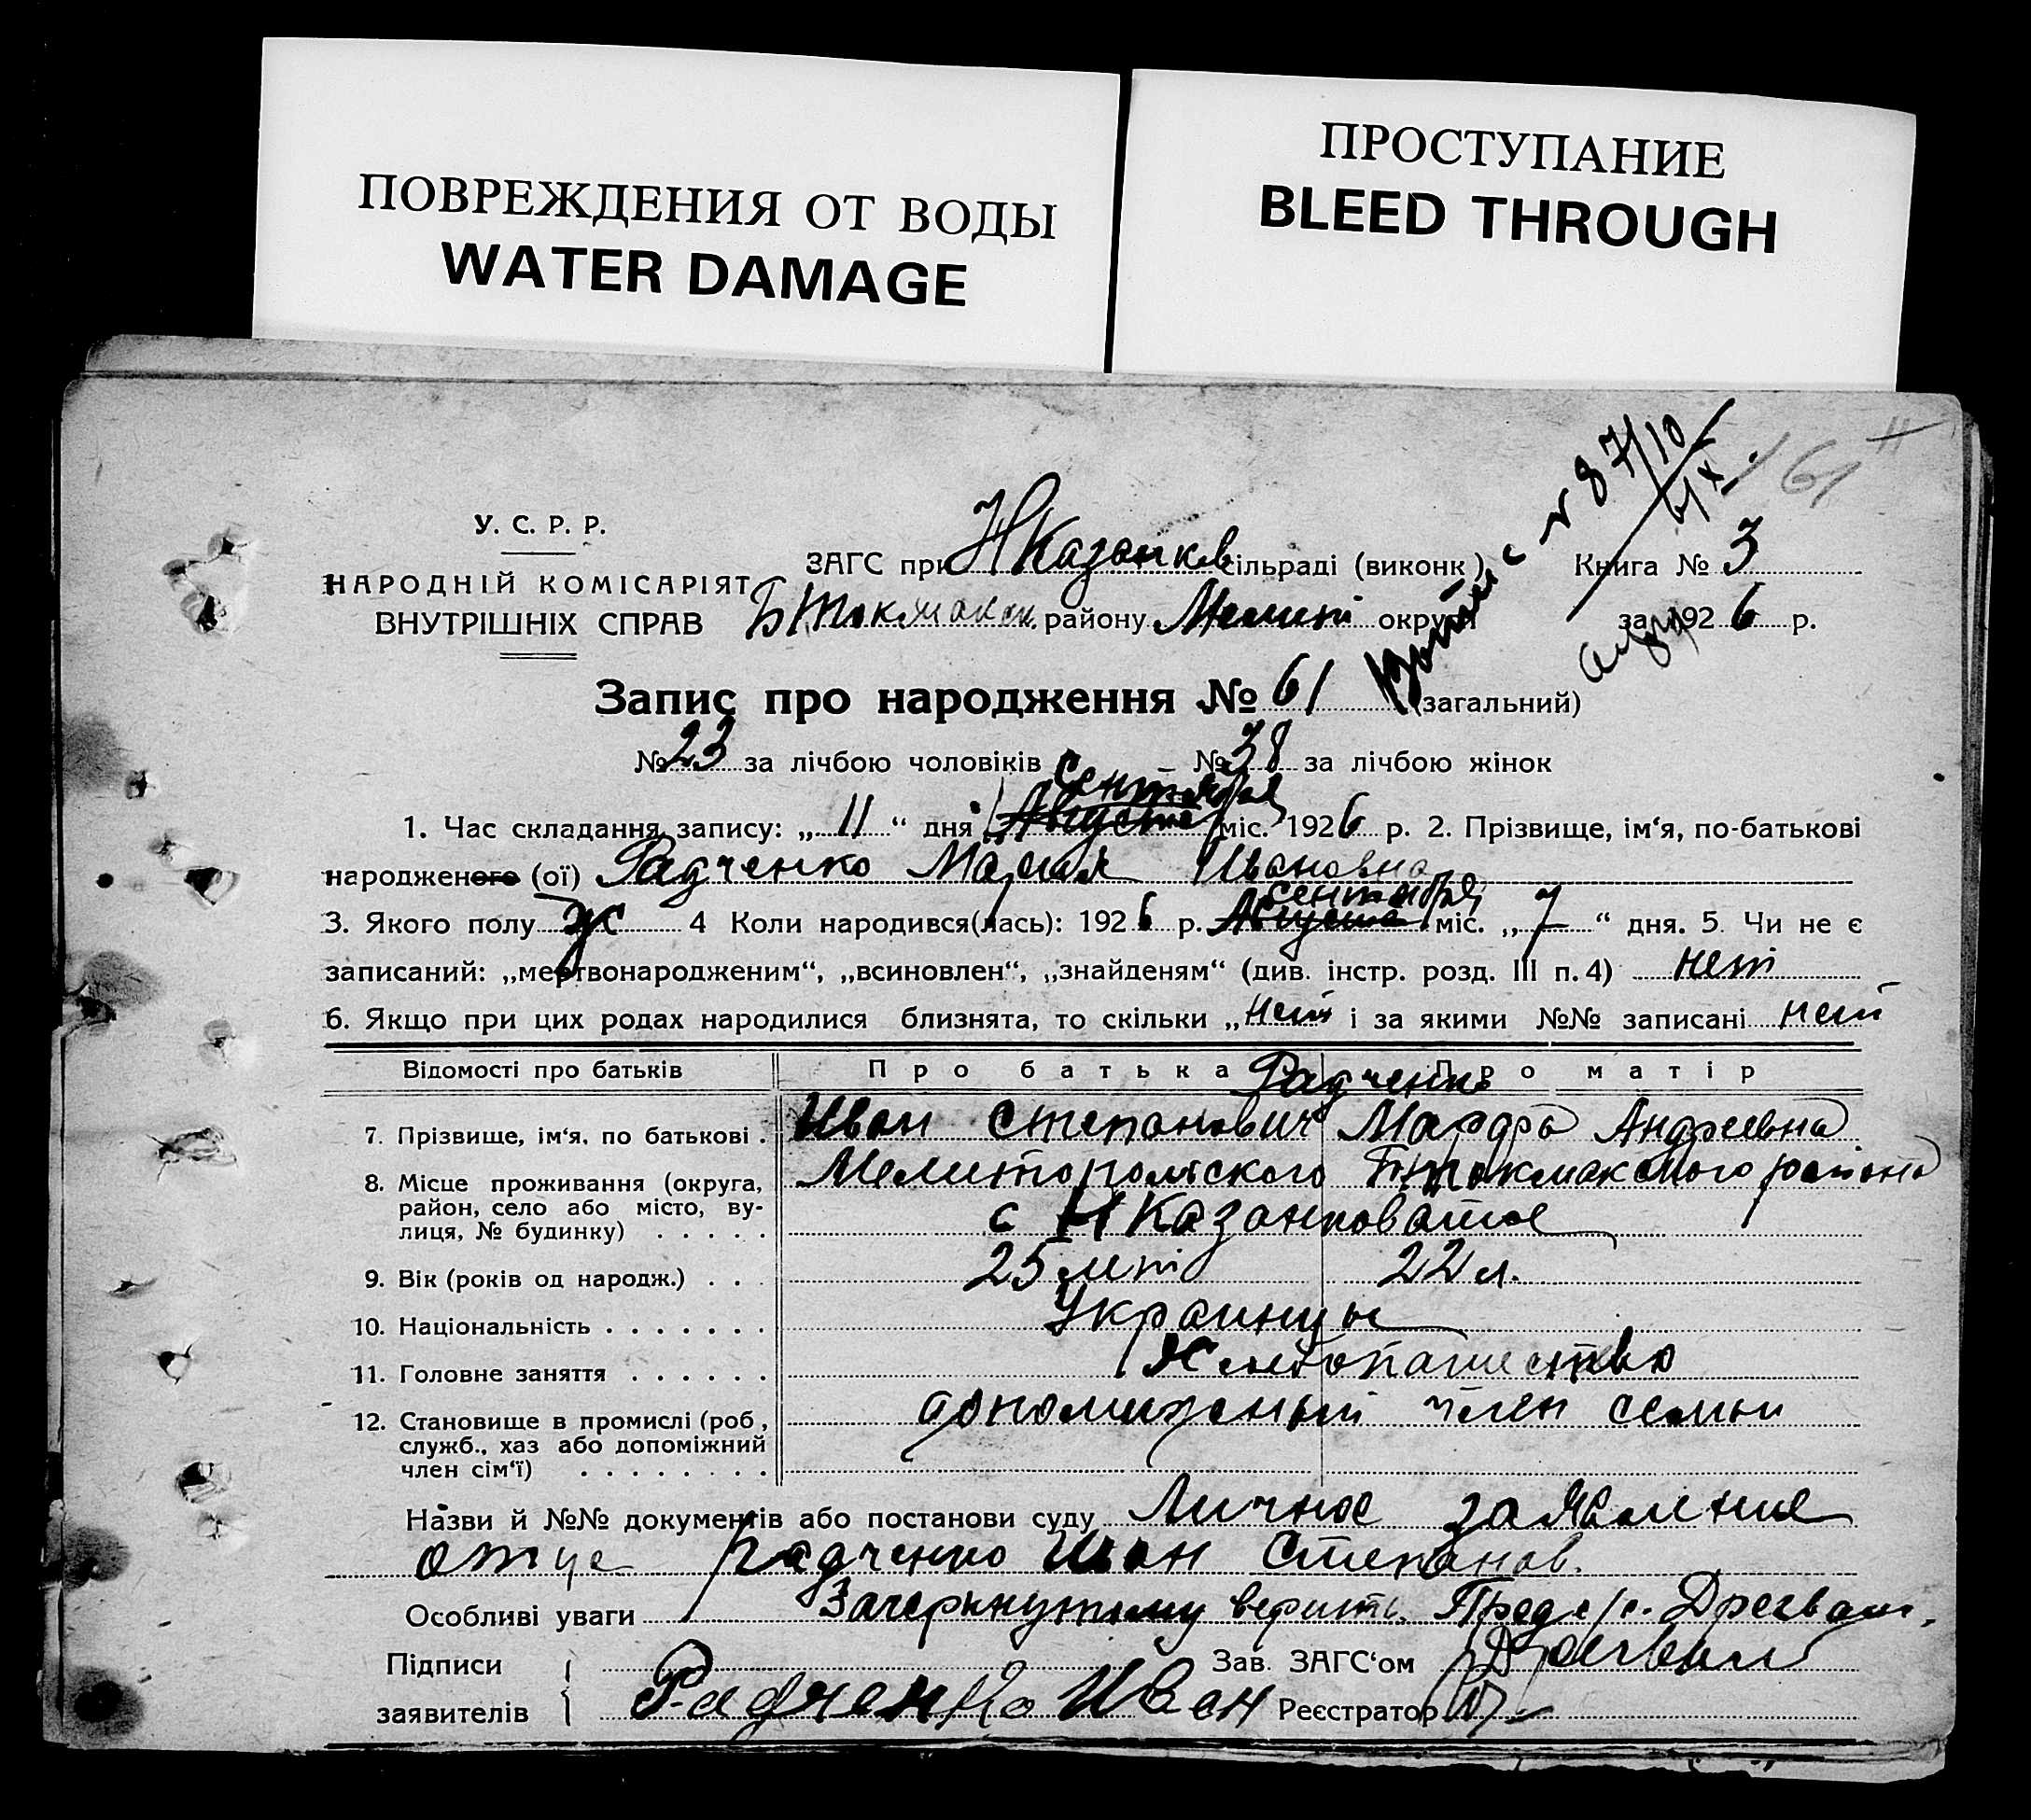 ПОВРЕЖДЕНИЯ ОТ ВОДЫ
WATER DAMAGE
ПРОСТУПАНИЕ
BLEED THROUGH
№ 87/10
161
У. С. Р. Р.
НАРОДНІЙ КОМІСАРІЯТ
ВНУТРІШНІХ СПРАВ
ЗАГС при НКазанков сільраді (виконк) Книга № 3
БТокмакск. району Мелит округи за 1926 р.
Запис про народження № 61 (загальний)
№ 23 за лічбою чоловіків № 38 за лічбою жінок
сентября
1. Час складання запису: „11“ дня Августа міс. 1926 р. 2. Прізвище, ім‘я, по-батькові
народженого (ої) Радченко Мария Ивановна
сентября
3. Якого полу ж 4 Коли народився(лась): 1926 р. Августа міс. „7“ дня. 5. Чи не є
записаний: „мертвонародженим“, „всиновлен“, „знайденям“ (див. інстр. розд. III п. 4) нет
6. Якщо при цих родах народилися близнята, то скільки „нет і за якими №№ записані нет
Відомості про батьків Про батька Про матір
Радченко
7. Прізвище, ім‘я, по батькові . Иван Степанович Марфа Андреевна
8. Місце проживання (округа, Мелитопольского Бтокмакского района
район, село або місто, ву- с НКазанковатое
лиця, № будинку) . . . . .
9. Вік (років од народж.) . . . 25 лет 22 л.
10. Національність . . . . . . . Украинцы
11. Головне заняття . . . . . . Хлебопашество
12. Становище в промислі (роб, допомижный член семьи
служб., хаз або допоміжний
член сім‘ї) . . . . . . . .
Назви й №№ документів або постанови суду Личное заявление
отца Радченко Иван Степанов.
Особливі уваги Зачеркнутому верить. Пред с/с.
Підписи Зав. ЗАГС‘ом
заявителів Радченко Иван Реєстратор